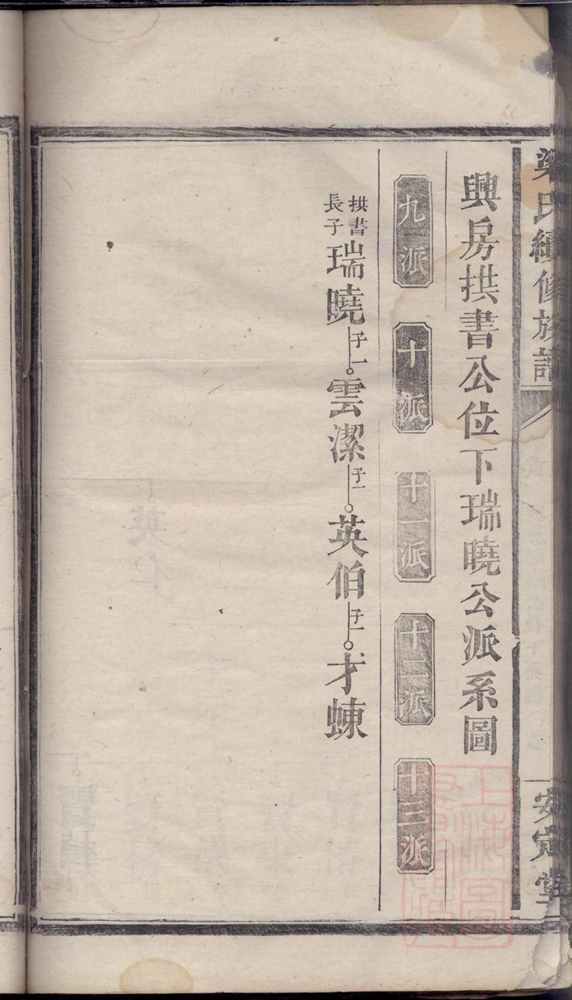 梁氏續修族譜
安定堂
興房拱書公位下瑞曉公派系圖
九派 十派 十一派 十二派 十三派
拱書長子 瑞曉 子一 雲潔 子一 英伯 子一 才蝀